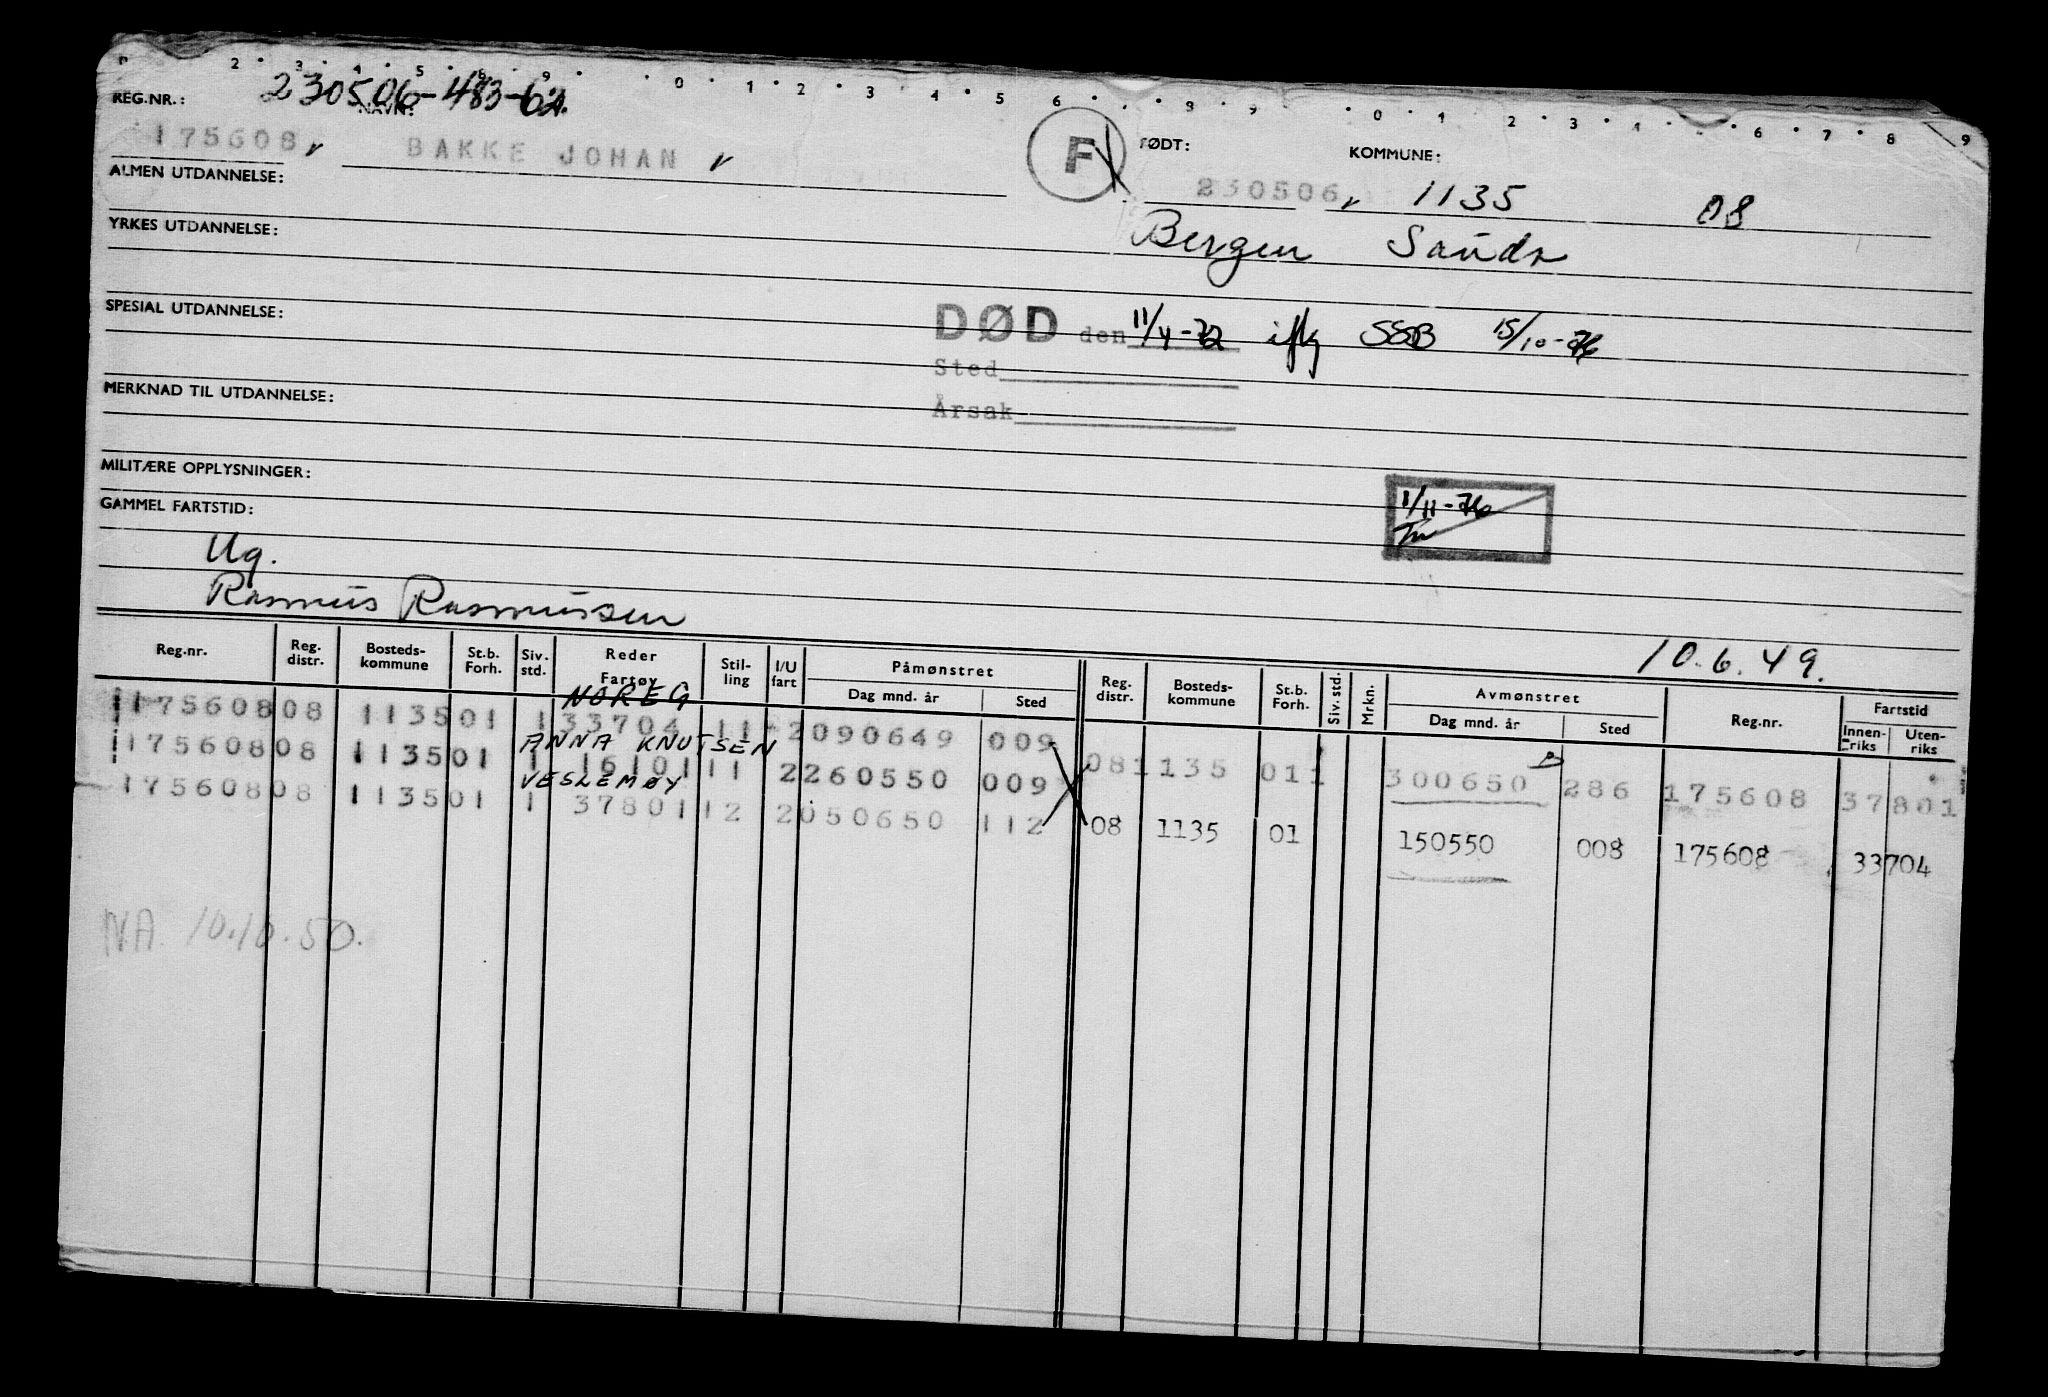 2 3 4 5 8 9 0 1 2 3 4 5 6 8 9 0 1 2 3 4 6 7 8 9
REG.NR.: 230506-483-62.
NAVN:
175608 BAKKE JOHAN F FØDT: KOMMUNE:
230506 1135 08
ALMEN UTDANNELSE:
Bergen Sauda
YRKES UTDANNELSE:
SPESIAL UTDANNELSE:
DØD den 11/4-72 iflg SSB 15/10-76
Sted
MERKNAD TIL UTDANNELSE:
Årsak
MILITÆRE OPPLYSNINGER:
1/11-76
GAMMEL FARTSTID:
Ug.
Rasmus Rasmussen
10.6.49.
Reg.nr. Reg. distr. Bosteds-kommune St.b. Forh. Siv. std. Reder Fartøy Stil-ling I/U fart Påmønstret Dag mnd. år Sted Reg. distr. Bosteds-kommune St.b. Forh. Siv. std. Mrkn. Avmønstret Dag mnd. år Sted Reg.nr. Fartstid Innen-riks Uten-riks
NOREG
175608 08 1135 01 1 33704 11 2 090649 009
ANNA KNUTSEN
175608 08 1135 01 1 16101 11 2 260550 009 08 1135 01 1 300650 286 175608 37801
VESLEMØY
175608 08 1135 01 1 37801 12 2 050650 112 08 1135 01 150550 008 175608 33704
N.A. 10.10.50.